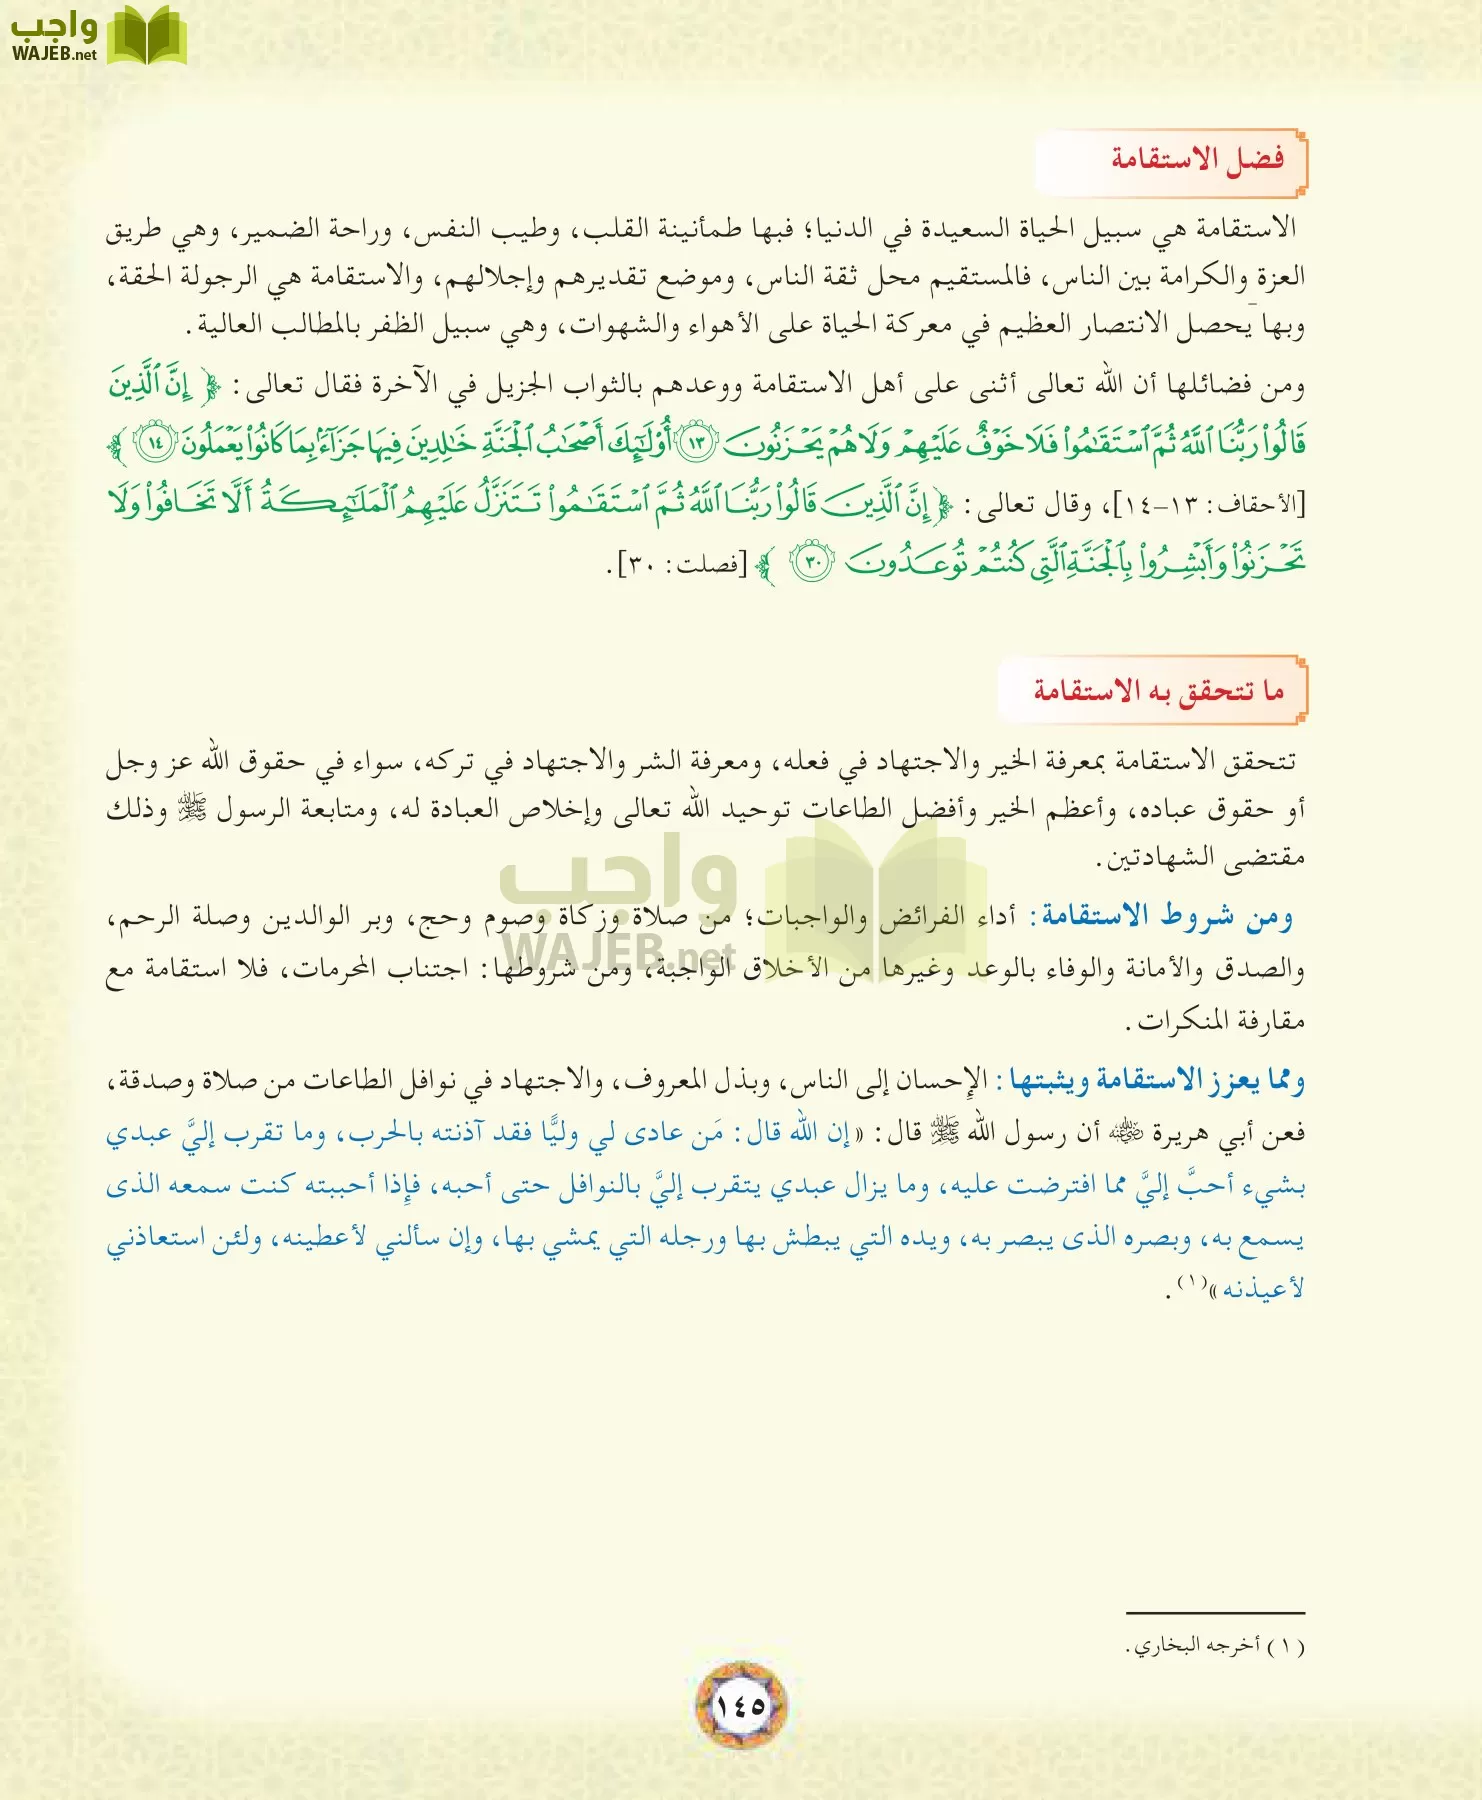 واجب
WAJEB.net
فضل الاستقامة
الاستقامة هي سبيل الحياة السعيدة في الدنيا؛ فبها طمأنينة القلب، وطيب النفس، وراحة الضمير، وهي طريق
العزة والكرامة بين الناس، فالمستقيم محل ثقة الناس، وموضع تقديرهم وإجلالهم، والاستقامة هي الرجولة الحقة،
وبها يَحصل الانتصار العظيم في معركة الحياة على الأهواء والشهوات، وهي سبيل الظفر بالمطالب العالية.
ومن فضائلها أن الله تعالى أثنى على أهل الاستقامة ووعدهم بالثواب الجزيل في الآخرة فقال تعالى: ﴿ إِنَّ ٱلَّذِينَ
قَالُوا۟ رَبُّنَا ٱللَّهُ ثُمَّ ٱسْتَقَٰمُوا۟ فَلَا خَوْفٌ عَلَيْهِمْ وَلَا هُمْ يَحْزَنُونَ ١٣ أُو۟لَٰٓئِكَ أَصْحَٰبُ ٱلْجَنَّةِ خَٰلِدِينَ فِيهَا جَزَآءًۢ بِمَا كَانُوا۟ يَعْمَلُونَ ١٤ ﴾
[الأحقاف: ١٣–١٤]، وقال تعالى: ﴿ إِنَّ ٱلَّذِينَ قَالُوا۟ رَبُّنَا ٱللَّهُ ثُمَّ ٱسْتَقَٰمُوا۟ تَتَنَزَّلُ عَلَيْهِمُ ٱلْمَلَٰٓئِكَةُ أَلَّا تَخَافُوا۟ وَلَا
تَحْزَنُوا۟ وَأَبْشِرُوا۟ بِٱلْجَنَّةِ ٱلَّتِى كُنتُمْ تُوعَدُونَ ٣٠ ﴾ [فصلت: ٣٠].
ما تتحقق به الاستقامة
تتحقق الاستقامة بمعرفة الخير والاجتهاد في فعله، ومعرفة الشر والاجتهاد في تركه، سواء في حقوق الله عز وجل
أو حقوق عباده، وأعظم الخير وأفضل الطاعات توحيد الله تعالى وإخلاص العبادة له، ومتابعة الرسول ﷺ وذلك
مقتضى الشهادتين.
ومن شروط الاستقامة: أداء الفرائض والواجبات؛ من صلاة وزكاة وصوم وحج، وبر الوالدين وصلة الرحم،
والصدق والأمانة والوفاء بالوعد وغيرها من الأخلاق الواجبة، ومن شروطها: اجتناب المحرمات، فلا استقامة مع
مقارفة المنكرات.
واجب
WAJEB.net
ومما يعزز الاستقامة ويثبتها: الإحسان إلى الناس، وبذل المعروف، والاجتهاد في نوافل الطاعات من صلاة وصدقة،
فعن أبي هريرة رضي الله عنه أن رسول الله ﷺ قال: «إن الله قال: مَن عادى لي وليًّا فقد آذنته بالحرب، وما تقرب إليَّ عبدي
بشيء أحبَّ إليَّ مما افترضت عليه، وما يزال عبدي يتقرب إليَّ بالنوافل حتى أحبه، فإذا أحببته كنت سمعه الذى
يسمع به، وبصره الذى يبصر به، ويده التي يبطش بها ورجله التي يمشي بها، وإن سألني لأعطينه، ولئن استعاذني
لأعيذنه»(١).
(١) أخرجه البخاري.
١٤٥